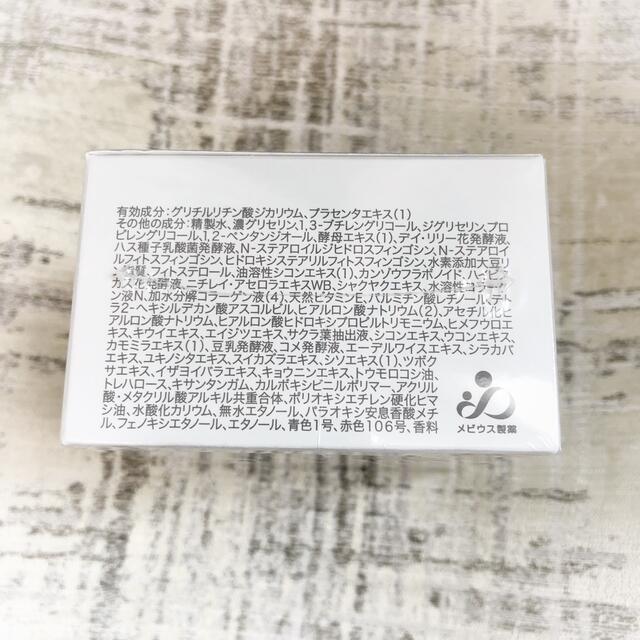 有効成分:グリチルリチン酸ジカリウム、プラセンタエキス(1)
その他の成分:精製水、濃グリセリン、1,3-ブチレングリコール、ジグリセリン、プロ
ピレングリコール、1,2-ペンタンジオール、酵母エキス(1)、デイ・リリー花発酵液、
ハス種子乳酸菌発酵液、N-ステアロイルジヒドロスフィンゴシン、N-ステアロイ
ルフィトスフィンゴシン、ヒドロキシステアリルフィトスフィンゴシン、水素添加大豆リ
フィトステロール、油溶性シコンエキス(1)、カンゾウフラボノイド、
カス花発酵液、ニチレイ・アセロラエキスWB、シャクヤクエキス、水溶性
ンN液、加水分解コラーゲン液(4)、天然ビタミンE、パルミチン酸レチノール、
ラ2-ヘキシルデカン酸アスコルビル、ヒアルロン酸ナトリウム(2)、アセチル化ヒ
アルロン酸ナトリウム、ヒアルロン酸ヒドロキシプロピルトリモニウム、ヒメフウロエ
キス、キウイエキス、エイジツエキス、サクラ葉抽出液、シコンエキス、ウコンエキス、
カモミラエキス(1)、豆乳発酵液、コメ発酵液、エーデルワイスエキス、シラカバ
エキス、ユキノシタエキス、スイカズラエキス、シソエキス(1)、ツボク
サエキス、イザヨイバラエキス、キョウニンエキス、トウモロコシ油、
トレハロース、キサンタンガム、カルボキシビニルポリマー、アクリル
酸・メタクリル酸アルキル共重合体、ポリオキシエチレン硬化ヒマ
シ油、水酸化カリウム、無水エタノール、パラオキシ安息香酸メチ
ル、フェノキシエタノール、エタノール、青色1号、赤色106号、香料
メビウス製薬